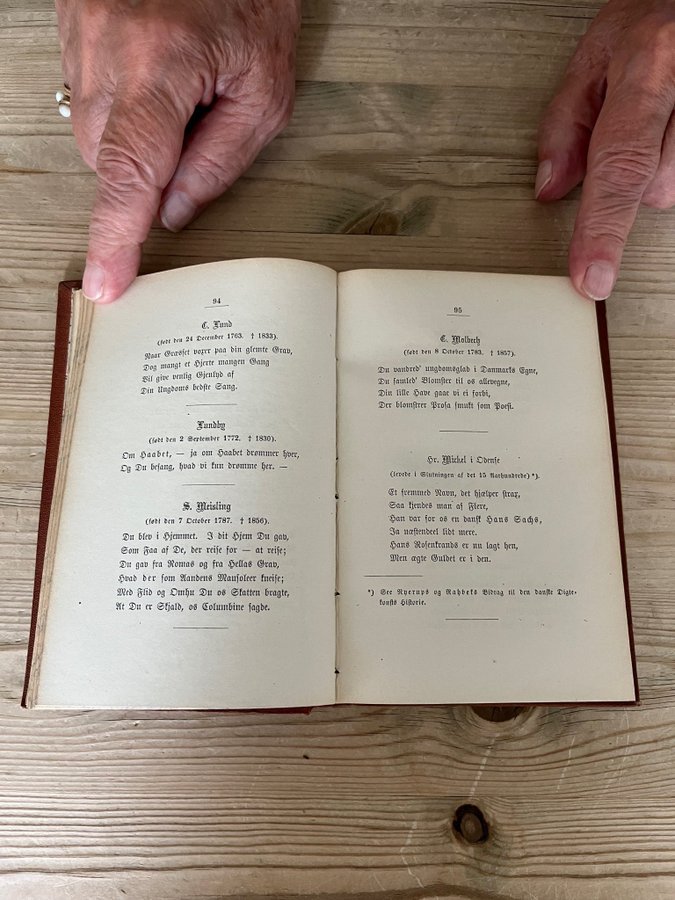 94
C. Lund
(født den 24 December 1763. † 1833).
Naar Græsset voxer paa din glemte Grav,
Dog mangt et Hjerte mangen Gang
Vil give venlig Gjenlyd af
Din Ungdoms bedste Sang.
Lundby
(født den 2 September 1772. † 1830).
Om Haabet, — ja om Haabet drømmer hver,
Og Du besang, hvad vi kun drømme her. —
S. Meisling
(født den 7 October 1787. † 1856).
Du blev i Hjemmet. I dit Hjem Du gav,
Som Faa af De, der reise for — at reise;
Du gav fra Romas og fra Hellas Grav,
Hvad der som Aandens Mausoleer kneise;
Med Flid og Omhu Du os Skatten bragte,
At Du er Skjald, os Columbine sagde.
95
C. Molbech
(født den 8 October 1783. † 1857).
Du vandred' ungdomsglad i Danmarks Egne,
Du samled' Blomster til os allevegne,
Din lille Have gaae vi ei forbi,
Der blomstrer Prosa smukt som Poesi.
Hr. Mickel i Odense
(levede i Slutningen af det 15 Aarhundrede) *).
Et fremmed Navn, det hjælper strax,
Saa kjendes man af Flere,
Han var for os en dansk Hans Sachs,
Ja næstendeel lidt mere.
Hans Rosenkrands er nu lagt hen,
Men ægte Guldet er i den.
*) See Nyerups og Rahbeks Bidrag til den danske Digte-
konsts Historie.